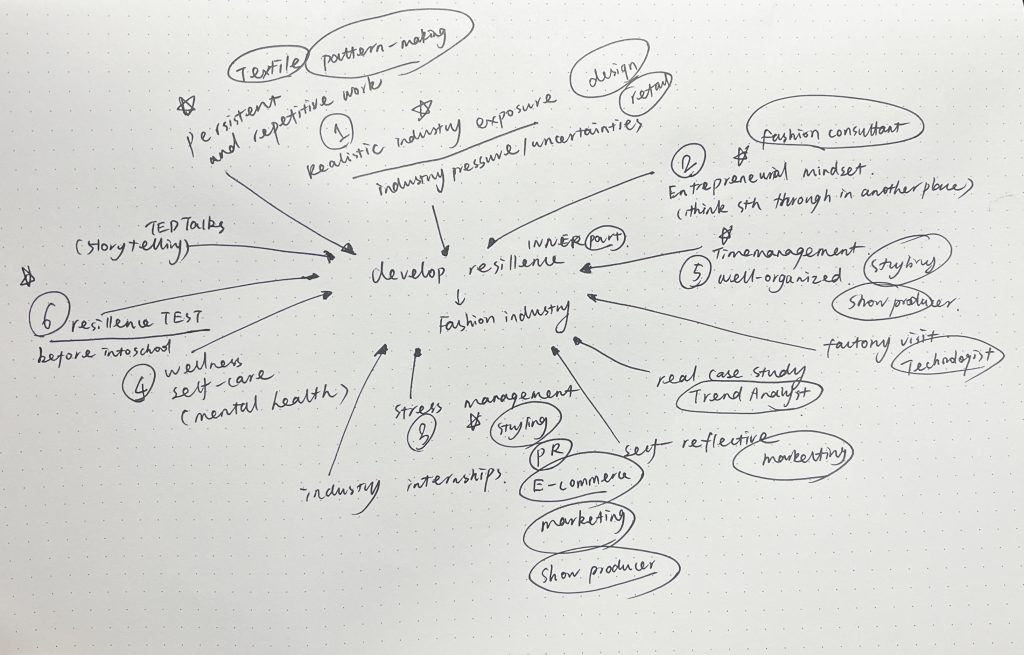 Textile pattern-making
Persistent
and repetitive work
design
retail
1
Realistic industry exposure
industry pressure/uncertainties
fashion consultant
2
Entrepreneurial mindset.
(think sth through in another place)
TED Talks
(storytelling)
INNER part
develop resillence
Fashion industry
Timemanagement
5 well-organized.
styling
Show producer.
6 resillence TEST
before into school
4 wellness
self-care
(mental health)
factory visit
Technologist
real case study
Trend Analyst
stress management
3
styling
PR
self reflective
marketing
industry internships.
E-commerce
marketing
Show producer